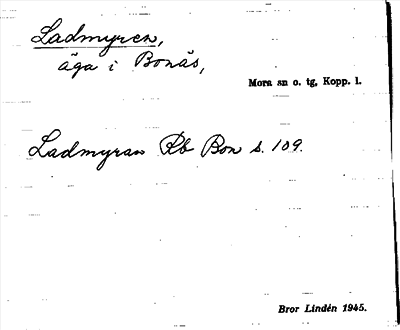 Ladmyren,
äga i Bonäs,
Mora sn o. tg, Kopp. l.
Ladmyran Rb Bon s. 109.
Bror Lindén 1945.